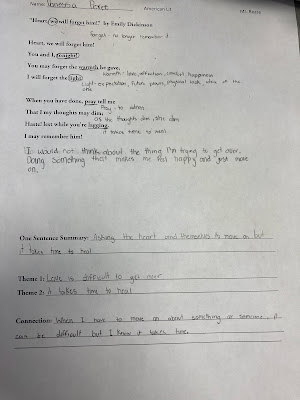 Name: Vanessa Perez American Lit Ms. Reese
"Heart, we will forget him!" by Emily Dickinson
forget - no longer remember
Heart, we will forget him!
You and I, tonight!
You may forget the warmth he gave,
warmth - love, affection, comfort, happiness
I will forget the light.
Light - expectation, future, physical look, idea of the one
When you have done, pray tell me
Pray - to
That I my thoughts may dim;
as the thoughts dim, she dim
Haste! lest while you're lagging,
it takes time to heal
I may remember him!
I would not think about the thing I'm trying to get over.
Doing something that makes me feel happy and just move
on.
One Sentence Summary: Asking the heart and themselves to move on but
it takes time to heal
Theme 1: Love is difficult to get over
Theme 2: it takes time to heal
Connection: When I have to move on about something or someone, it
can be difficult but I know it takes time.